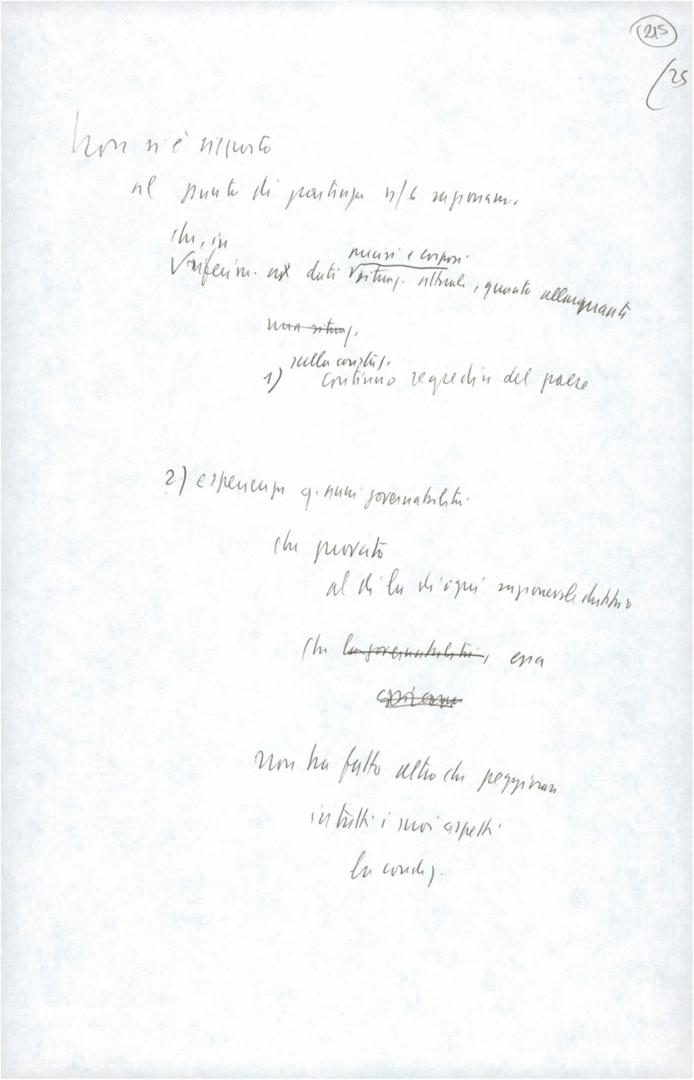 215
(25
Non si è risposto
al punto di partenza n/s ragionam.
che, in
riferim. ai dati
precisi e corposi
situaz. attuale, quanto allarmanti
una situaz.
sulla condiz.
1) continuo regredire del paese
2) esperienza q. anni governabilità
che provato
al di là di ogni ragionevole dubbio
che la governabilità, essa
non ha fatto altro che peggiorare
in tutti i suoi aspetti
la condiz.